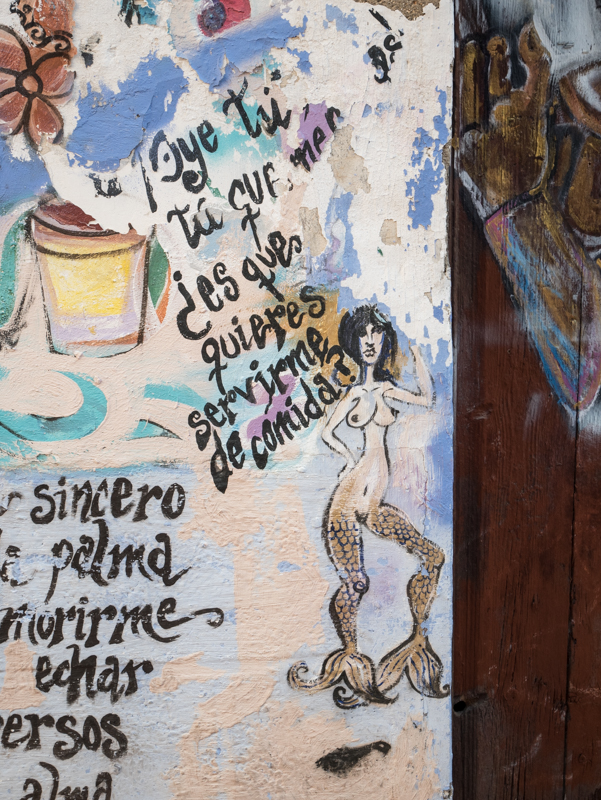 Oye tú
tú que
¿es que
quieres
servirme
de comida?
sincero
palma
morirme
echar
ersos
alma